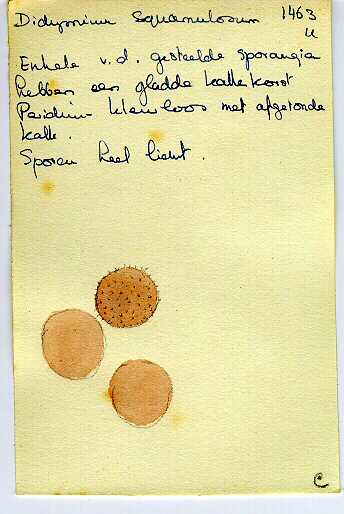 Didymium squamulosum 1463
Enkele v.d. gesteelde sporangia
hebben een gladde kalkkorst
Peridium kleurloos met afgeronde
kalk.
Sporen heel licht.
C